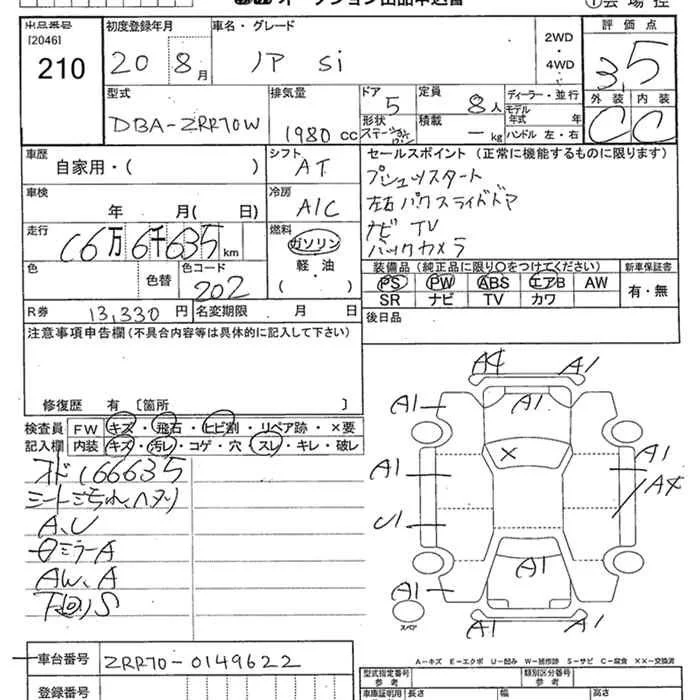 オークション出品申込書
①会場控
出品番号 [2046] 210
初度登録年月 20 8月
車名・グレード ノア Si
2WD・4WD
評価点 3.5
外装 C 内装 C
型式 DBA-ZRR70W
排気量 1980 cc
ドア 5
形状 ステーションワゴン
定員 8人
積載 ー kg
ディーラー・並行
モデル年式 年
ハンドル 左・右
車歴 自家用・( )
シフト AT
セールスポイント (正常に機能するものに限ります)
プッシュスタート
左右パワースライドドア
ナビ TV
バックカメラ
車検 年 月(日)
冷房 A/C
走行 16万6千635km
燃料 ガソリン
軽・油
( )
色 色替 色コード 202
装備品(純正品に限り○をつけてください)
PS PW ABS エアB AW
SR ナビ TV カワ
新車保証書 有・無
R券 13,330円 名変期限 月 日
後日品
注意事項申告欄(不具合内容等は具体的に記入して下さい)
修復歴 有 [箇所 ]
検査員記入欄
FW キズ・飛石・ヒビ割・リペア跡・×要
内装 キズ・汚レ・コゲ・穴・スレ・キレ・破レ
オド166635
シートよごれ、ヘタリ
A、U
ミラーA
AW、A
下回りS
A4 A1
A1 A1
×
A1 A1
A4
U1
A1
A1
A1 A1
スペア
A-キズ E-エクボ U-凹み W-補修跡 S-サビ C-腐食 ××-交換済
車台番号 ZRR70-0149622
型式指定番号 参考
類別区分番号 参考
登録番号
車庫証明用 長さ 幅 高さ